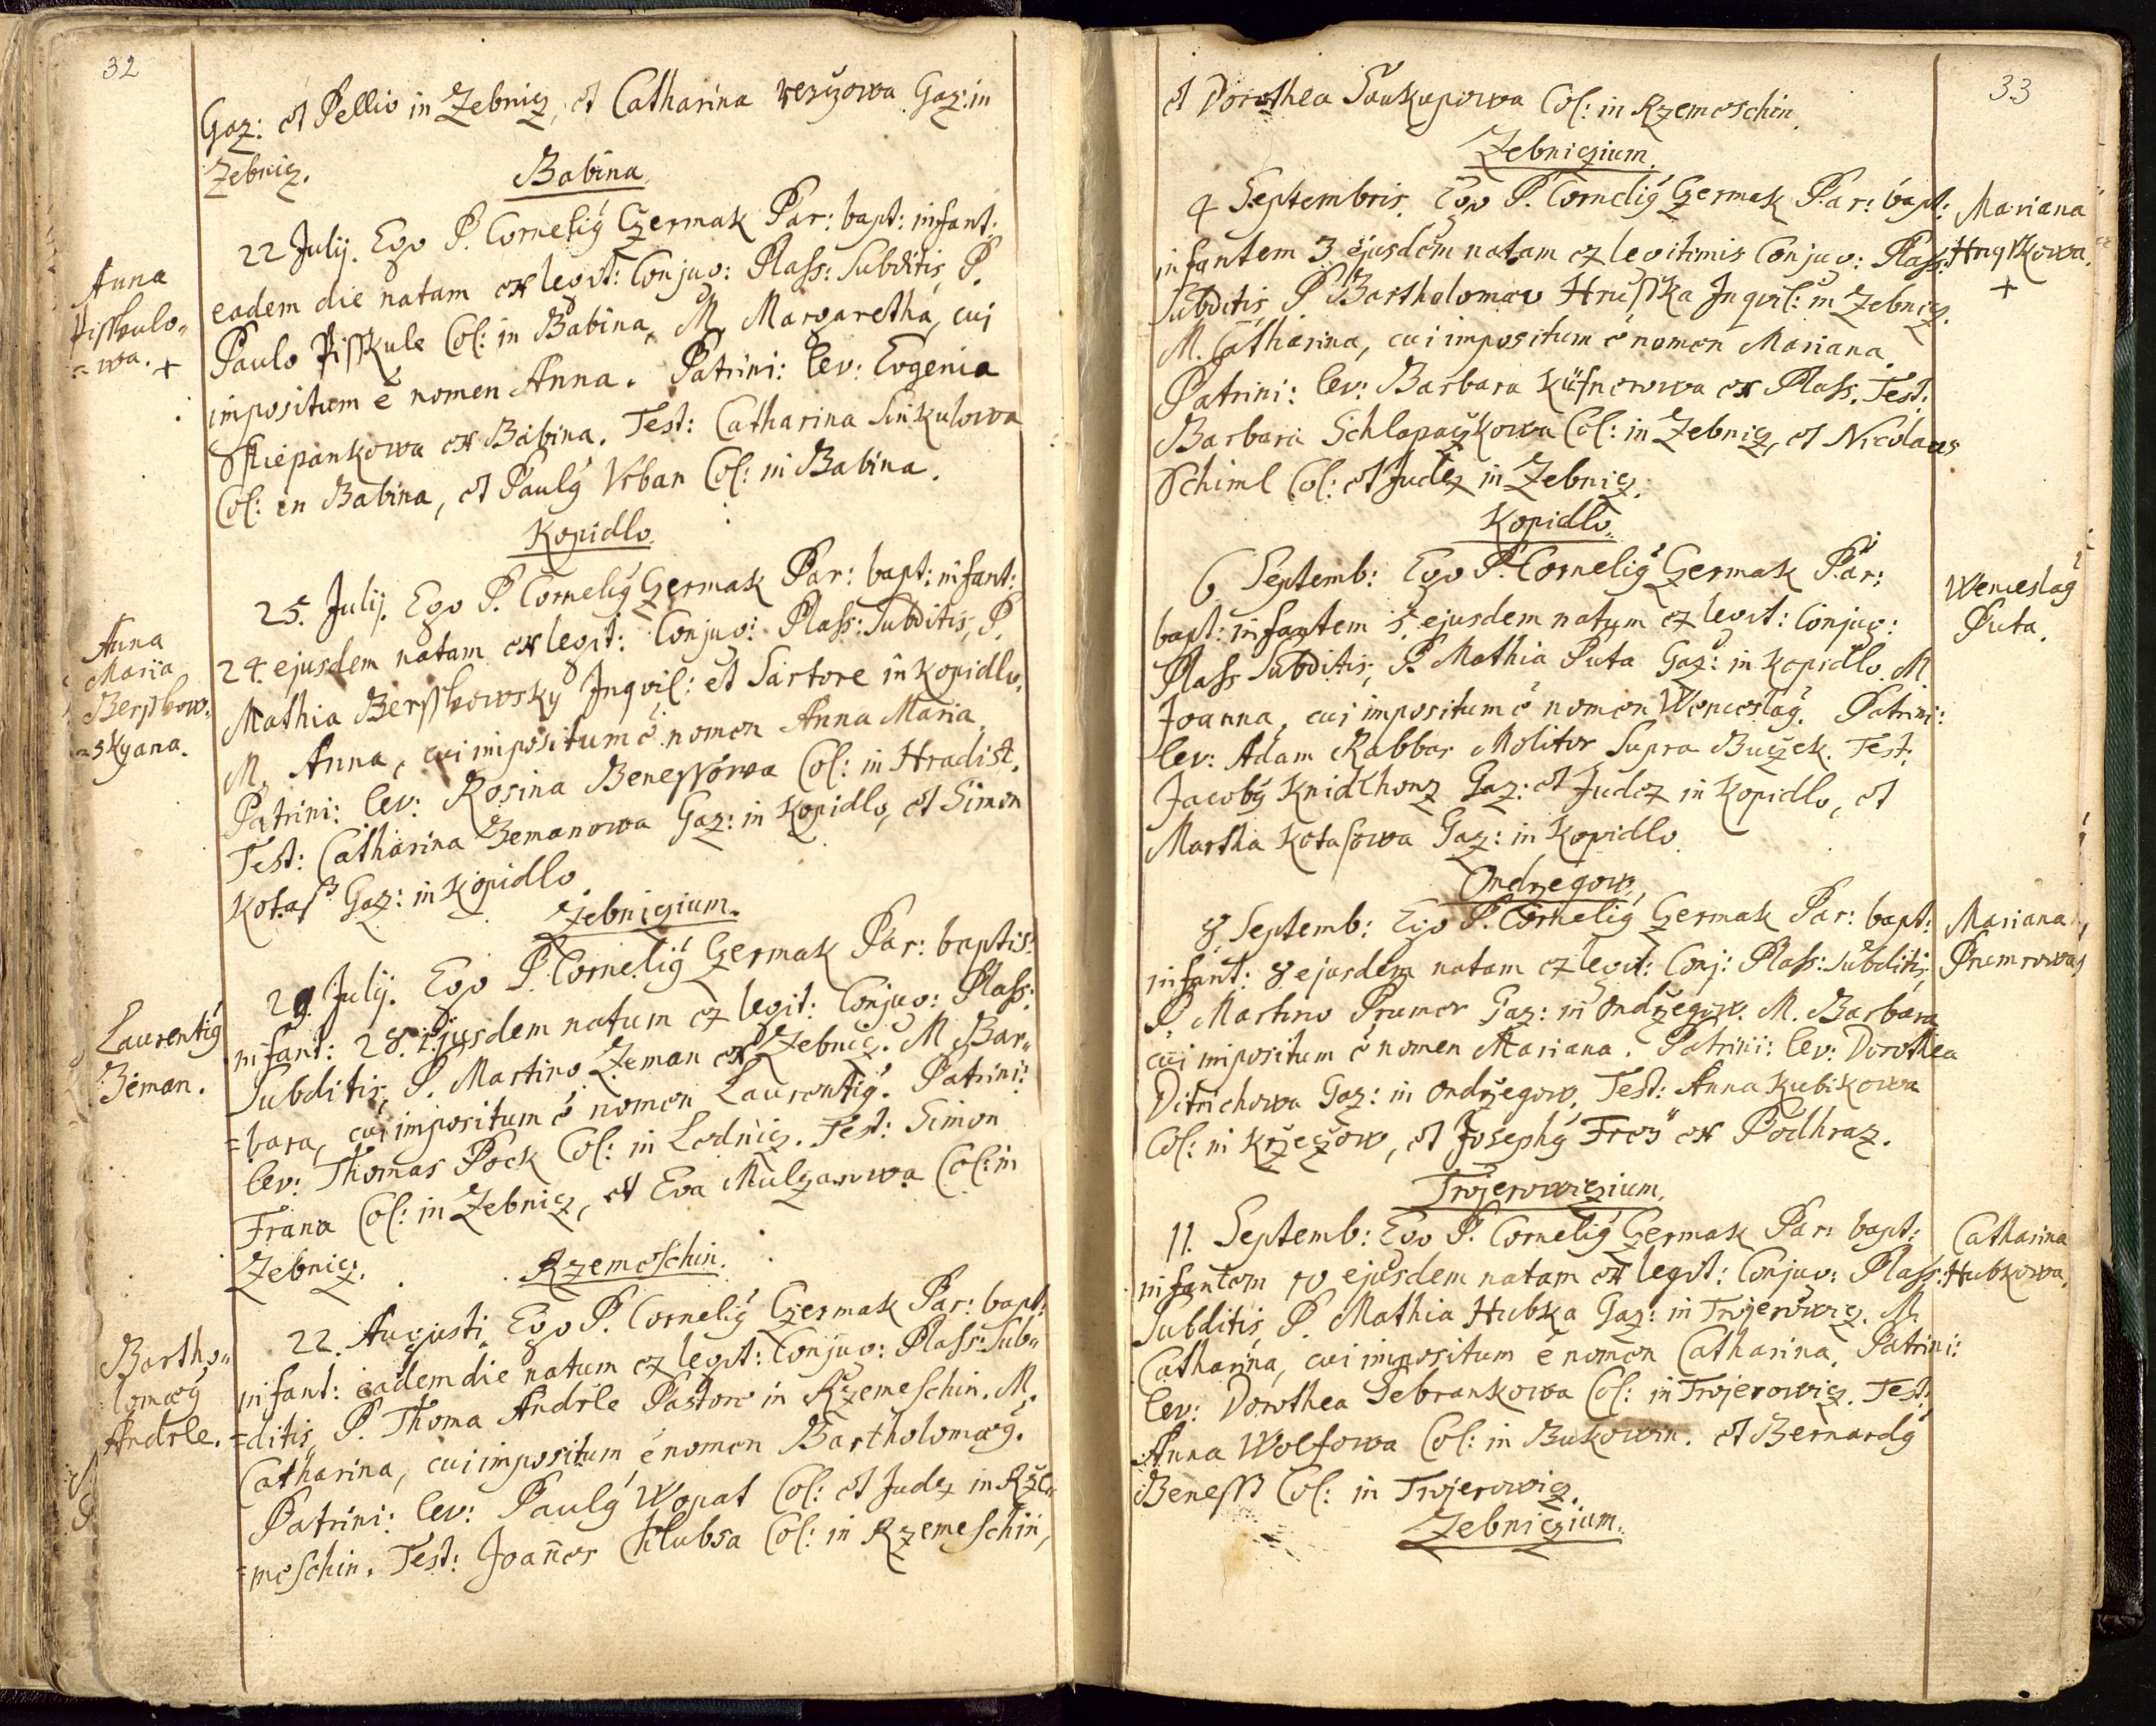 32
Gaz: et Pellio in Zebnicz, et Catharina Gaz: in
Zebnicz.
Babina
Anna
Pisskulo=
=wa. +
22 Julij. Ego P. Cornelig Czermak Par: bapt: infant:
eadem die natam ex legit: Conjug: Plass: Subditis, P.
Paulo Pisskule Col: in Babina, M. Margaretha, cui
impositum ē nomen Anna. Patrini: lev: Eugenia
Sstiepankowa ex Babina. Test: Catharina Sinkulowa
Col: in Babina, et Paulg Urban Col: in Babina.
Kopidlo.
Anna
Maria
Bersskow=
=skyana.
25. Julij. Ego P. Cornelig Czermak Par: bapt: infant:
24. ejusdem natam ex legit: Conjug: Plass: Subditis, P.
Mathia Bersskowsky Inqvil: et Sartore in Kopidlo.
M. Anna, cui impositum ē nomen Anna Maria.
Patrini: lev: Rosina Benessowa Col: in Hradist.
Test: Catharina Zemanowa Gaz: in Kopidlo, et Simon
Kotass Gaz: in Kopidlo.
Zebniczium.
Laurentig
Zeman.
29. Julij. Ego P. Cornelig Czermak Par: baptis:
infant: 28. ejusdem natum ex legit: Conjug: Plass:
Subditis, P. Martino Zeman ex Zebnic. M Bar=
=bara, cui impositum ē nomen Laurentig. Patrini:
lev: Thomas Pock Col: in Lednicz. Test: Simon
Frana Col: in Zebnicz, et Eva Mulzarowa Col: in
Zebnicz.
Rzemeschin.
Bartho=
lomæg
Andrle.
22. Augusti. Ego P. Cornelig Czermak Par: bapt:
infant: eadem die natum ex legit: Conjug: Plass: Sub=
=ditis, P. Thoma Andrle Pastore in Rzemeschin. M.
Catharina, cui impositum ē nomen Bartholomæg.
Patrini: lev: Paulg Wopat Col: et Judex in Rze=
=meschin. Test: Joañes Chlubna Col: in Rzemeschin,
33
et Dorothea Saukupowa Col: in Rzemeschin.
Zebniczium.
4 Septembris. Ego P. Cornelig Czermak Par: bapt:
infantem 3. ejusdem natam ex legitimis Conjug: Plass:
Subditis, P. Bartholomæo Hrusska Inqvil: in Zebnicz.
M. Catharina, cui impositum ē nomen Mariana.
Patrini: lev: Barbara Küfnerowa ex Plass. Test:
Barbara Schlapaczkowa Col: in Zebnicz, et Nicolaus
Schiml Col: et Judex in Zebnicz.
Mariana
+
Kopidlo.
6 Septemb: Ego P. Cornelig Czermak Par:
bapt: infantem 5. ejusdem natum ex legit: Conjug:
Plass Subditis, P. Mathia Puta Gaz: in Kopidlo. M.
Joanna, cui impositum ē nomen Wenceslag. Patrini:
lev: Adam Rabbas Molitor Supra Buczek. Test:
Jacobg Knidlhonz Gaz: et Judex in Kopidlo, et
Martha Kotasowa Gaz: in Kopidlo
Wenceslag
Puta.
Ondrzegow.
8 Septemb: Ego P. Cornelig Czermak Par: bapt:
infant: 8 ejusdem natam ex legit: Conj: Plass: Subditis,
P. Martino Prumer Gaz: in Ondrzegow. M. Barbara
cui impositum ē nomen Mariana. Patrini: lev: Dorothea
Ditrichowa Gaz: in Ondrzegow. Test: Anna Kubikowa
Col: in Krzeczow, et Josephg Freÿ ex Podhraz.
Mariana
Prumrowa
Trojerowiczium.
11. Septemb: Ego P. Cornelig Czermak Par: bapt:
infantem 10 ejusdem natam ex legit: Conjug: Plass:
Subditis, P. Mathia Hubka Gaz: in Trojerowicz. M.
Catharina, cui impositum ē nomen Catharina. Patrini:
lev: Dorothea Sebrankowa Col: in Trojerowicz. Test:
Anna Wolfowa Col: in Bukowin. et Bernardg
Beness Col: in Trojerowicz.
Catharina
Hubkowa.
Zebniczium.